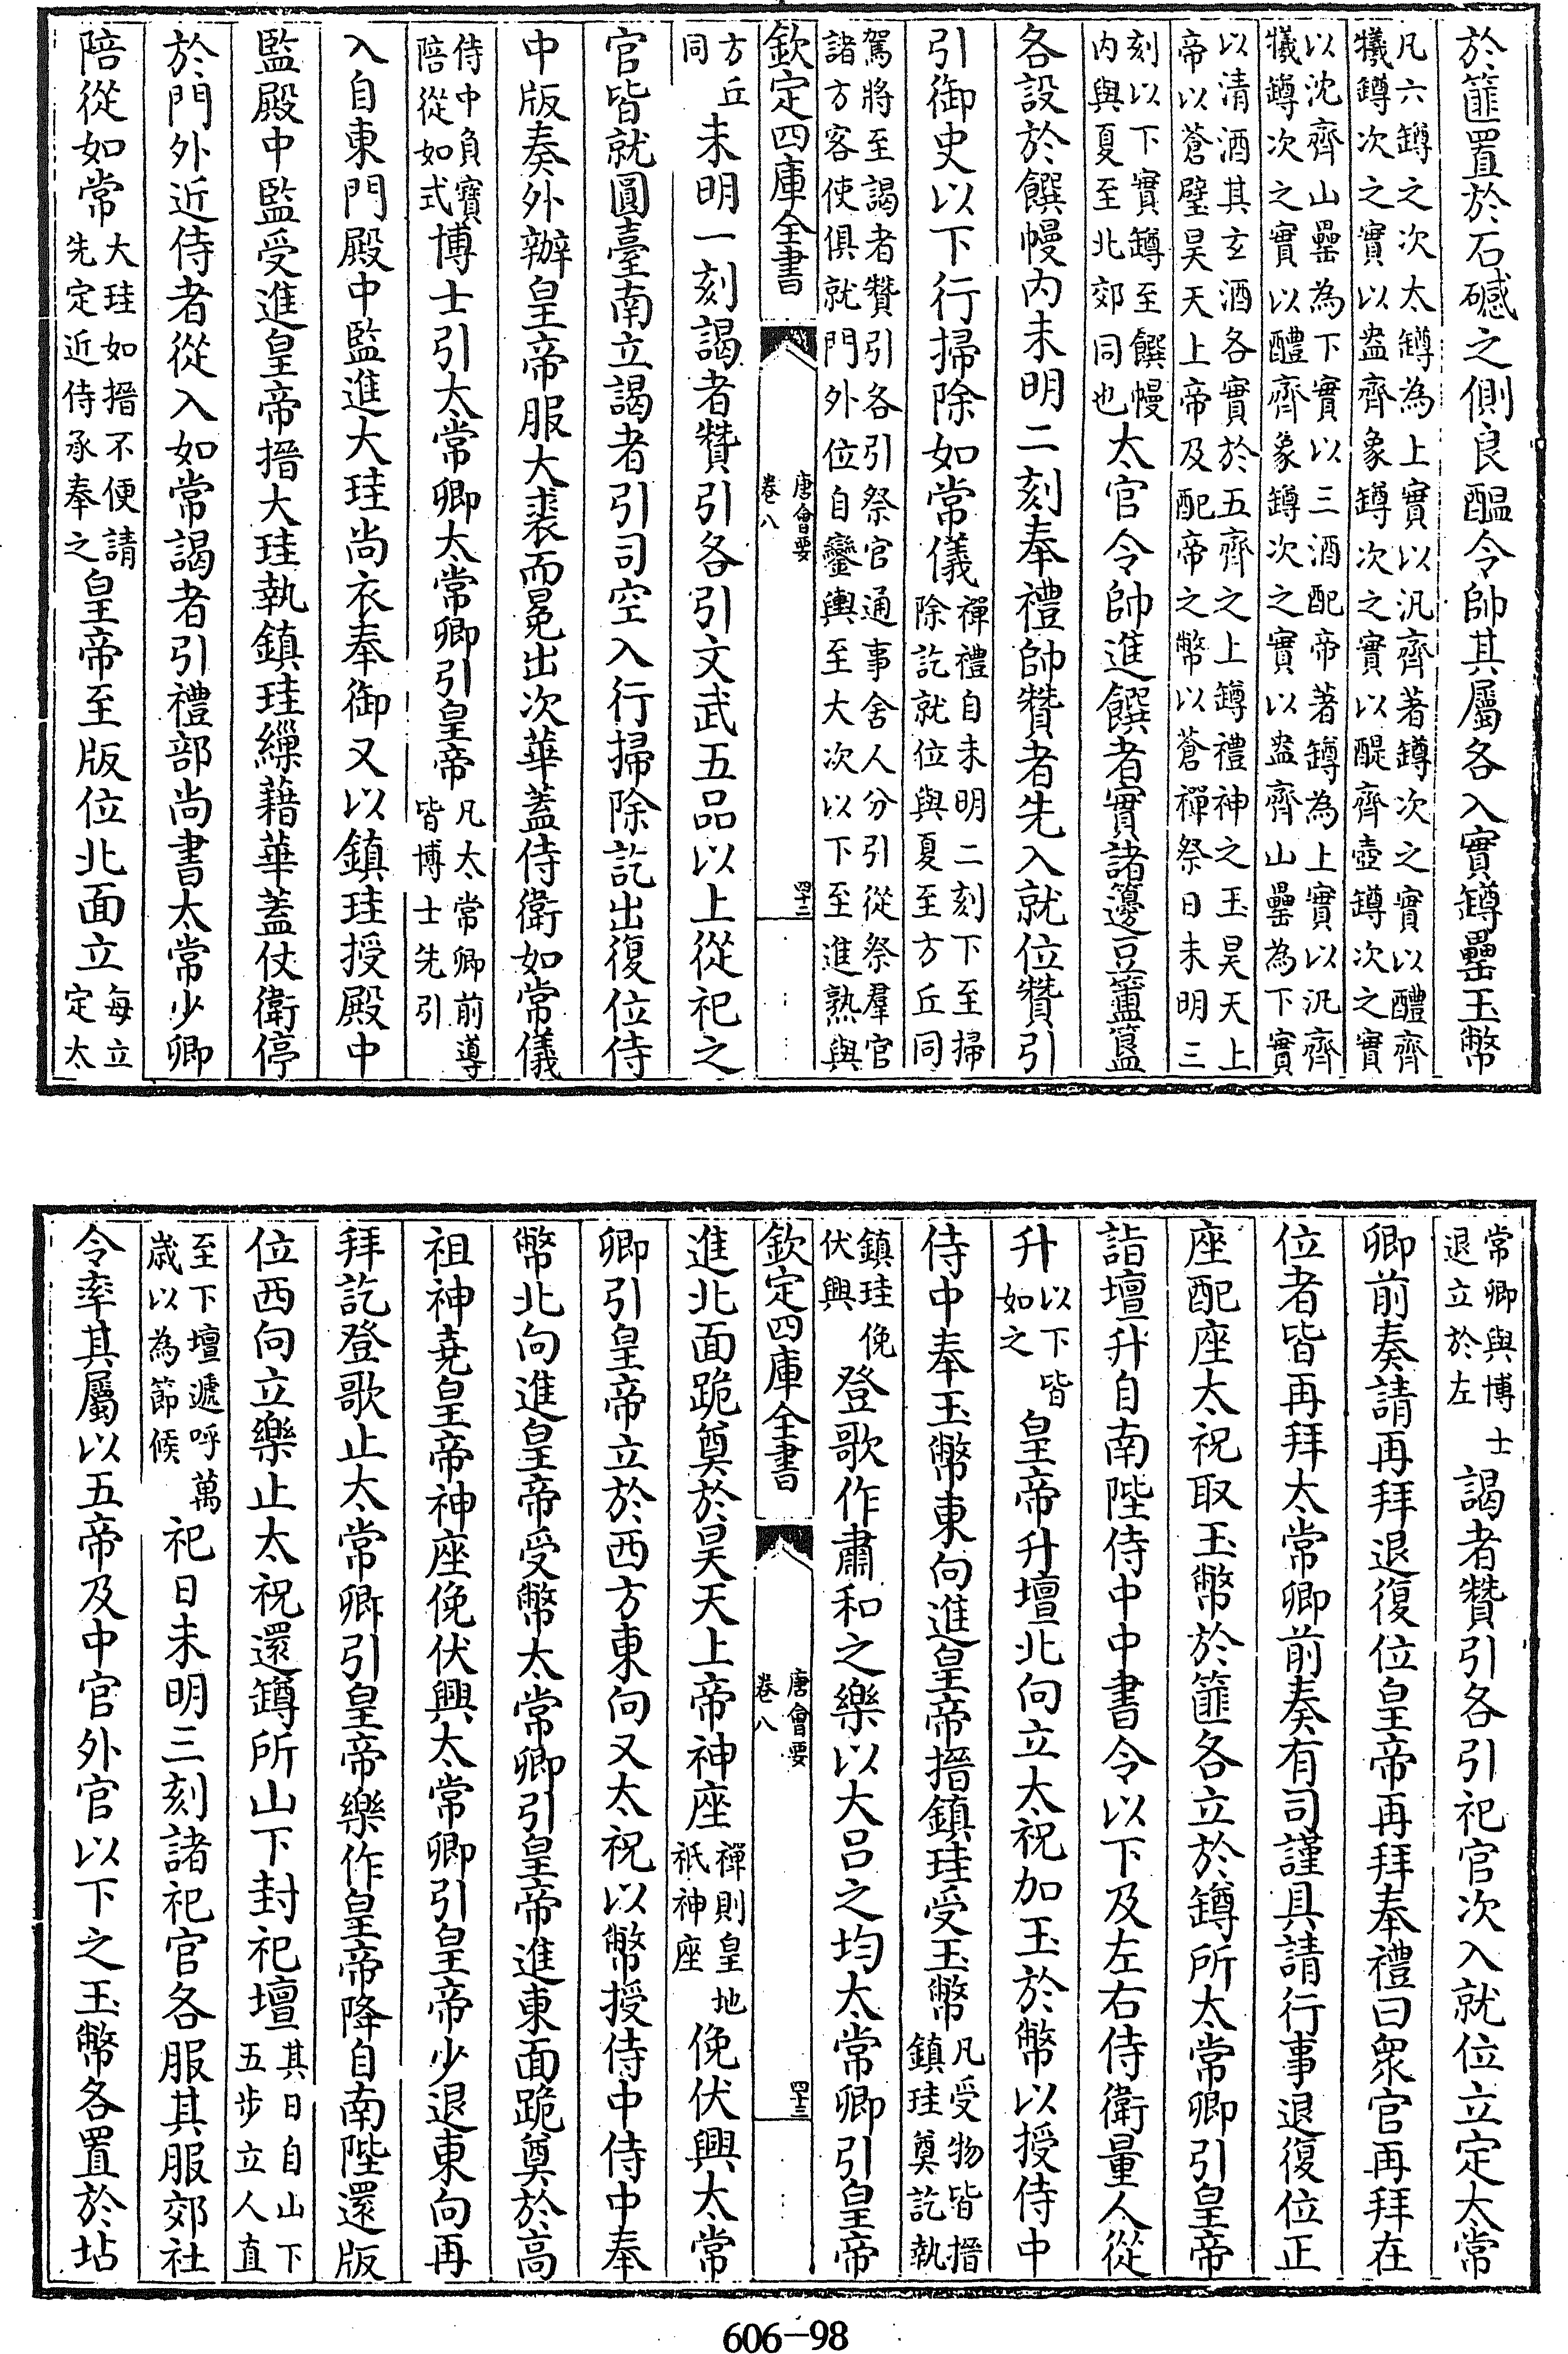 於篚置於石䃭之側良醞令帥其屬各入實罇罍玉幣
凡六罇之次太罇為上實以汎齊著罇次之實以醴齊
犧罇次之實以盎齊象罇次之實以醍齊壺罇次之實
以沈齊山罍為下實以三酒配帝著罇為上實以汎齊
犧罇次之實以醴齊象罇次之實以盎齊山罍為下實
以清酒其玄酒各實於五齊之上罇禮神之玉昊天上
帝以蒼璧昊天上帝及配帝之幣以蒼禪祭日未明三
刻以下實罇至饌幔
内與夏至北郊同也太官令帥進饌者實諸籩豆簠簋
各設於饌幔内未明二刻奉禮帥贊者先入就位贊引
引御史以下行掃除如常儀禪禮自未明二刻下至掃
除訖就位與夏至方丘同
駕將至謁者贊引各引祭官通事舍人分引從祭羣官
諸方客使俱就門外位自鑾輿至大次以下至進熟與
欽定四庫全書
唐會要
卷八
四十三
方丘
同未明一刻謁者贊引各引文武五品以上從祀之
官皆就圓臺南立謁者引司空入行掃除訖出復位侍
中版奏外辦皇帝服大裘而冕出次華蓋侍衛如常儀
侍中負寶
陪從如式博士引太常卿太常卿引皇帝凡太常卿前導
皆博士先引
入自東門殿中監進大珪尚衣奉御又以鎮珪授殿中
監殿中監受進皇帝搢大珪執鎮珪繅藉華蓋仗衛停
於門外近侍者從入如常謁者引禮部尚書太常少卿
陪從如常大珪如搢不便請
先定近侍承奉之皇帝至版位北面立每立
定太
常卿與博士
退立於左謁者贊引各引祀官次入就位立定太常
卿前奏請再拜退復位皇帝再拜奉禮曰眾官再拜在
位者皆再拜太常卿前奏有司謹具請行事退復位正
座配座太祝取玉幣於篚各立於罇所太常卿引皇帝
詣壇升自南陛侍中中書令以下及左右侍衛量人從
升以下皆
如之皇帝升壇北向立太祝加玉於幣以授侍中
侍中奉玉幣東向進皇帝搢鎮珪受玉幣凡受物皆搢
鎮珪奠訖執
鎮珪俛
伏興登歌作肅和之樂以大呂之均太常卿引皇帝
欽定四庫全書
唐會要
卷八
四十三
進北面跪奠於昊天上帝神座禪則皇地
祇神座俛伏興太常
卿引皇帝立於西方東向又太祝以幣授侍中侍中奉
幣北向進皇帝受幣太常卿引皇帝進東面跪奠於高
祖神堯皇帝神座俛伏興太常卿引皇帝少退東向再
拜訖登歌止太常卿引皇帝樂作皇帝降自南陛還版
位西向立樂止太祝還罇所山下封祀壇其日自山下
五步立人直
至下壇遞呼萬
歲以為節候祀日未明三刻諸祀官各服其服郊社
令率其屬以五帝及中官外官以下之玉幣各置於坫
606-98